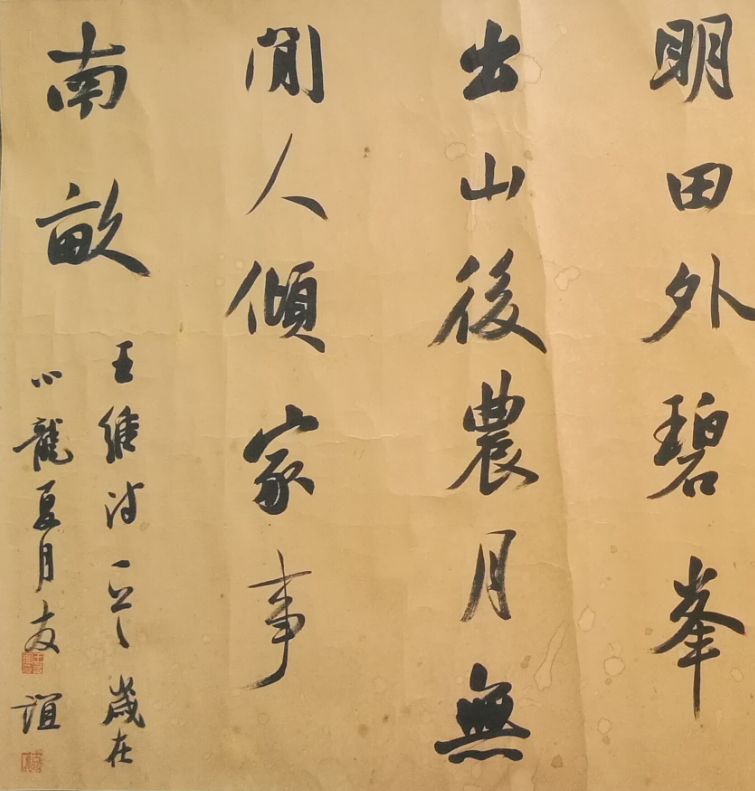 明田外碧峯
出山後農月無
閒人傾家事
南畝
王維詩一首 歲在
龍夏月友誼